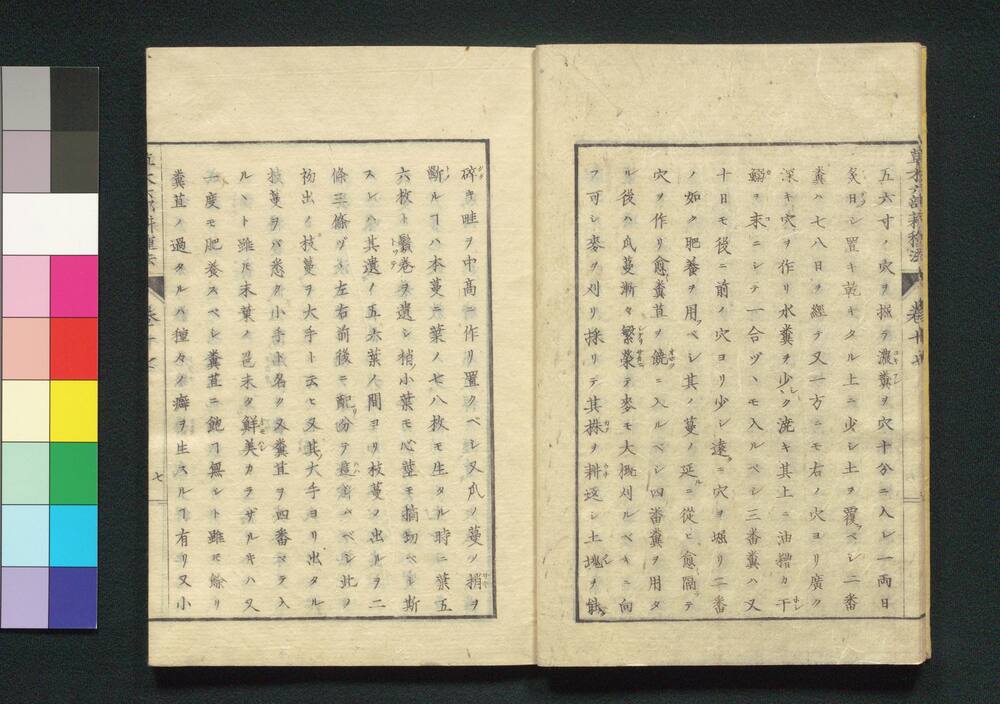 五六寸ノ穴ヲ掘テ濃糞ヲ穴十分ニ入レ一兩日
炙日シ置キ乾キタル上ニ少シ土ヲ覆ベシ二番
糞ハ七八日ヲ經テ又一方ニモ右ノ穴ヨリ廣ク
深キ穴ヲ作リ水糞ヲ少シク澆キ其上ニ油糟カ干
鰯ヲ末ニシテ一合ヅヽモ入ルベシ三番糞ハ又
十日モ後ニ前ノ穴ヨリ少シ遠ニ穴ヲ堀リ二番
ノ如ク肥養ヲ用ベシ其ノ蔓ノ延ニ從ヒ愈隔テ
穴ヲ作リ愈糞苴ヲ饒ニ入ルベシ四番糞ヲ用タ
ル後ハ瓜蔓漸々繁榮テ麥モ大概刈ルベキニ向
フ可シ麥ヲ刈リ採リテ其株ヲ耕返シ土塊ヲ
碎キ畦ヲ中高ニ作リ置クベシ又瓜ノ蔓ノ梢ヲ
斷ルヿハ本蔓ニ葉ノ七八枚モ生タル時ニ葉五
六枚ト鬚卷ヲ遺シ梢ノ小葉モ心莖モ摘切ベシ斯
スレハ其遺ノ五六葉ノ間ヨリ枝蔓ノ出ルヲ二
條三條ヅヽ左右前後ニ配分テ
ベシ此ノ
初出ノ枝蔓ヲ大手ト云ヒ又其大手ヨリ出タル
枝蔓ヲバ悉ク小手ト名ク又糞苴ヲ四番マテ入
ルヽト雖ル末葉ノ色未タ鮮美カラザルキハ又
一度モ肥養スベシ糞苴ニ飽ヿ無シト雖モ餘リ
糞苴ノ過タルハ種々ノ癖ヲ生スルヿ有リ又小
卷十七
七